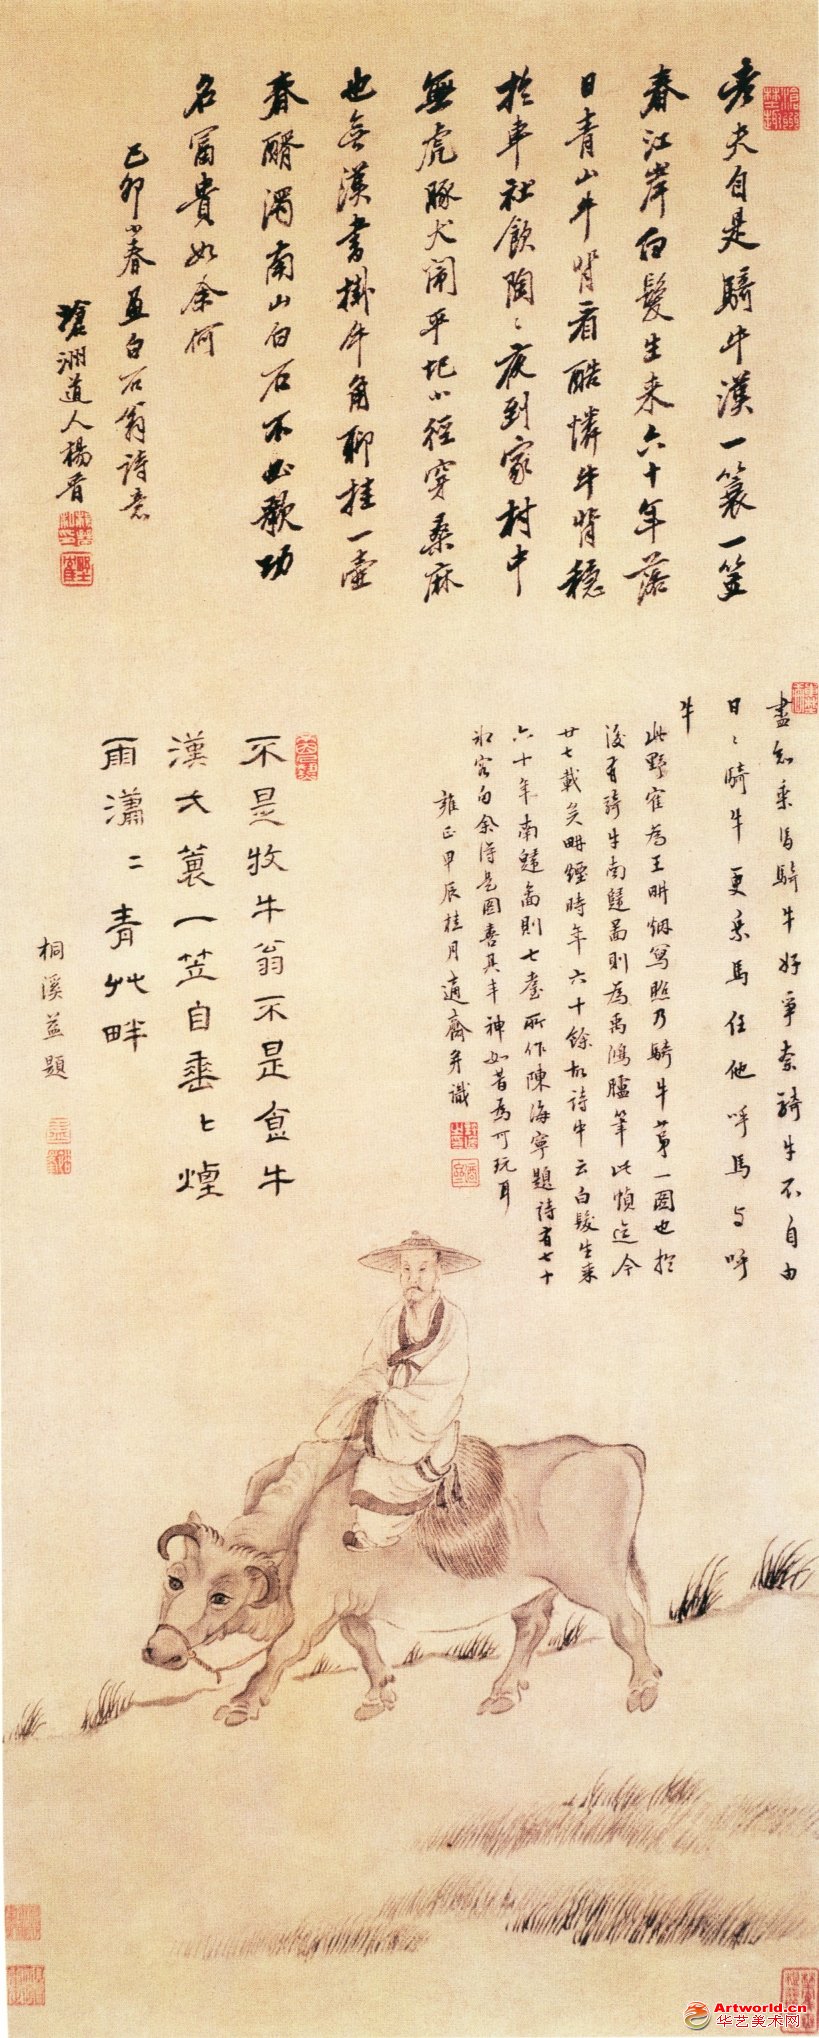 老夫自是騎牛漢一簑一笠
春江岸白髮生来六十年落
日青山牛背看酷憐牛背穩
於車社飲陶〻夜到家村中
無虎豚犬閙平圯小徑穿桑麻
也無漢書掛牛角聊挂一壺
春醑濁南山白石不必歌功
名富貴如余何
己卯小春畫白石翁詩意
洲道人楊晉
盡知乘馬騎牛好爭奈騎牛不自由
日〻騎牛更乘馬任他呼馬与呼
牛
此野寉為王畊烟寫照乃騎牛第一圖也於
後有騎牛南圖則為禹鴻臚筆此幀迄今
廿七載矣畊煙時年六十餘故詩中云白髮生来
六十年南圖則七耋所作陳海寧題詩有七十
客句余得是圖喜其丰神如昔為可玩耳
雍正甲辰桂月適齋并識
不是牧牛翁不是食牛
漢大簑一笠自垂〻煙
雨瀟〻青艸畔
桐溪益題
Artworld.cn
华艺美术网